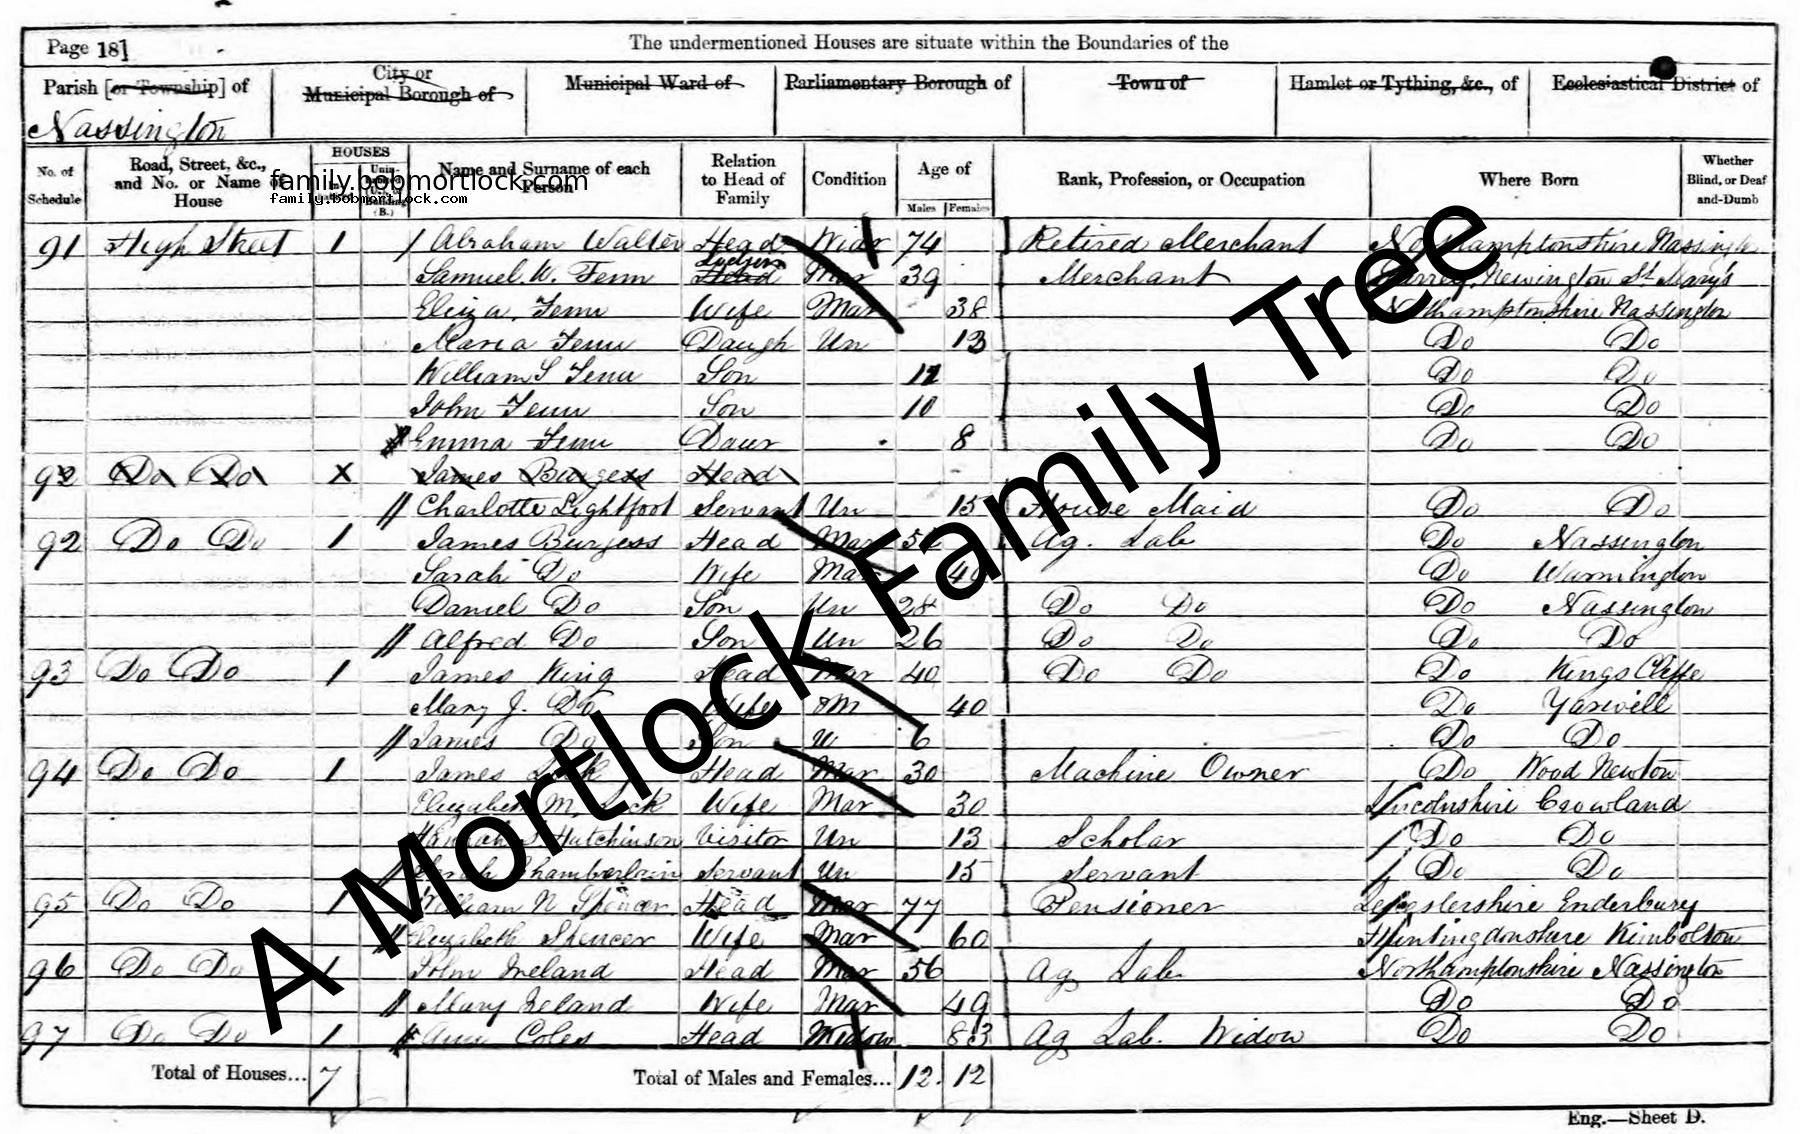 Page 18]
The undermentioned Houses are situate within the Boundaries of the
Parish [or Township] of
City or Municipal Borough of
Municipal Ward of
Parliamentary Borough of
Town of
Hamlet or Tything, &c., of
Ecclesiastical District of
Nassington
No. of Schedule
Road, Street, &c., and No. or Name of House
HOUSES
Name and Surname of each Person
Relation to Head of Family
Condition
Age of
Males
Females
Rank, Profession, or Occupation
Where Born
Whether Blind, or Deaf-and-Dumb
family.bobmortlock.com
family.bobmortlock.com
91 High Street 1 Abraham Walter Head Widr 74 Retired Merchant Northamptonshire Nassington
Samuel W. Fenn Lodger Head Mar 39 Merchant Surrey Newington St Mary's
Eliza Fenn Wife Mar 38 Northamptonshire Nassington
Maria Fenn Daugh Un 13 Do Do
William S Fenn Son Do Do
John Fenn Son 10 Do Do
Emma Fenn Daur 8 Do Do
92 Do Do James Burgess Head
Charlotte Lightfoot Servant Un 15 House Maid Do Do
92 Do Do 1 James Burgess Head Mar Ag. Lab Do Nassington
Sarah Do Wife Mar Do Warmington
Daniel Do Son Un 28 Do Do Do Nassington
Alfred Do Son Un 26 Do Do Do Do
93 Do Do 1 James King Head Mar 40 Do Do Do Kings Cliffe
Mary J. Do Wife M 40 Do Yarwell
James Do Son U 6 Do Do
94 Do Do 1 James Head Mar 30 Machine Owner Do Wood Newton
Elizabeth M. Wife Mar 30 Lincolnshire Crowland
Hutchinson Visitor Un 13 Scholar Do Do
Sarah Chamberlain Servant Un 15 Servant Do Do
95 Do Do 1 William N Spencer Head Mar 77 Pensioner Leicestershire Enderbury
Elizabeth Spencer Wife Mar 60 Huntingdonshire Kimbolton
96 Do Do 1 John Ireland Head Mar 56 Ag Lab Northamptonshire Nassington
Mary Ireland Wife Mar 49 Do Do
97 Do Do 1 Ann Coles Head Widow 83 Ag Lab. Widow Do Do
Total of Houses... 7
Total of Males and Females... 12. 12
Eng.—Sheet D.
A Mortlock Family Tree